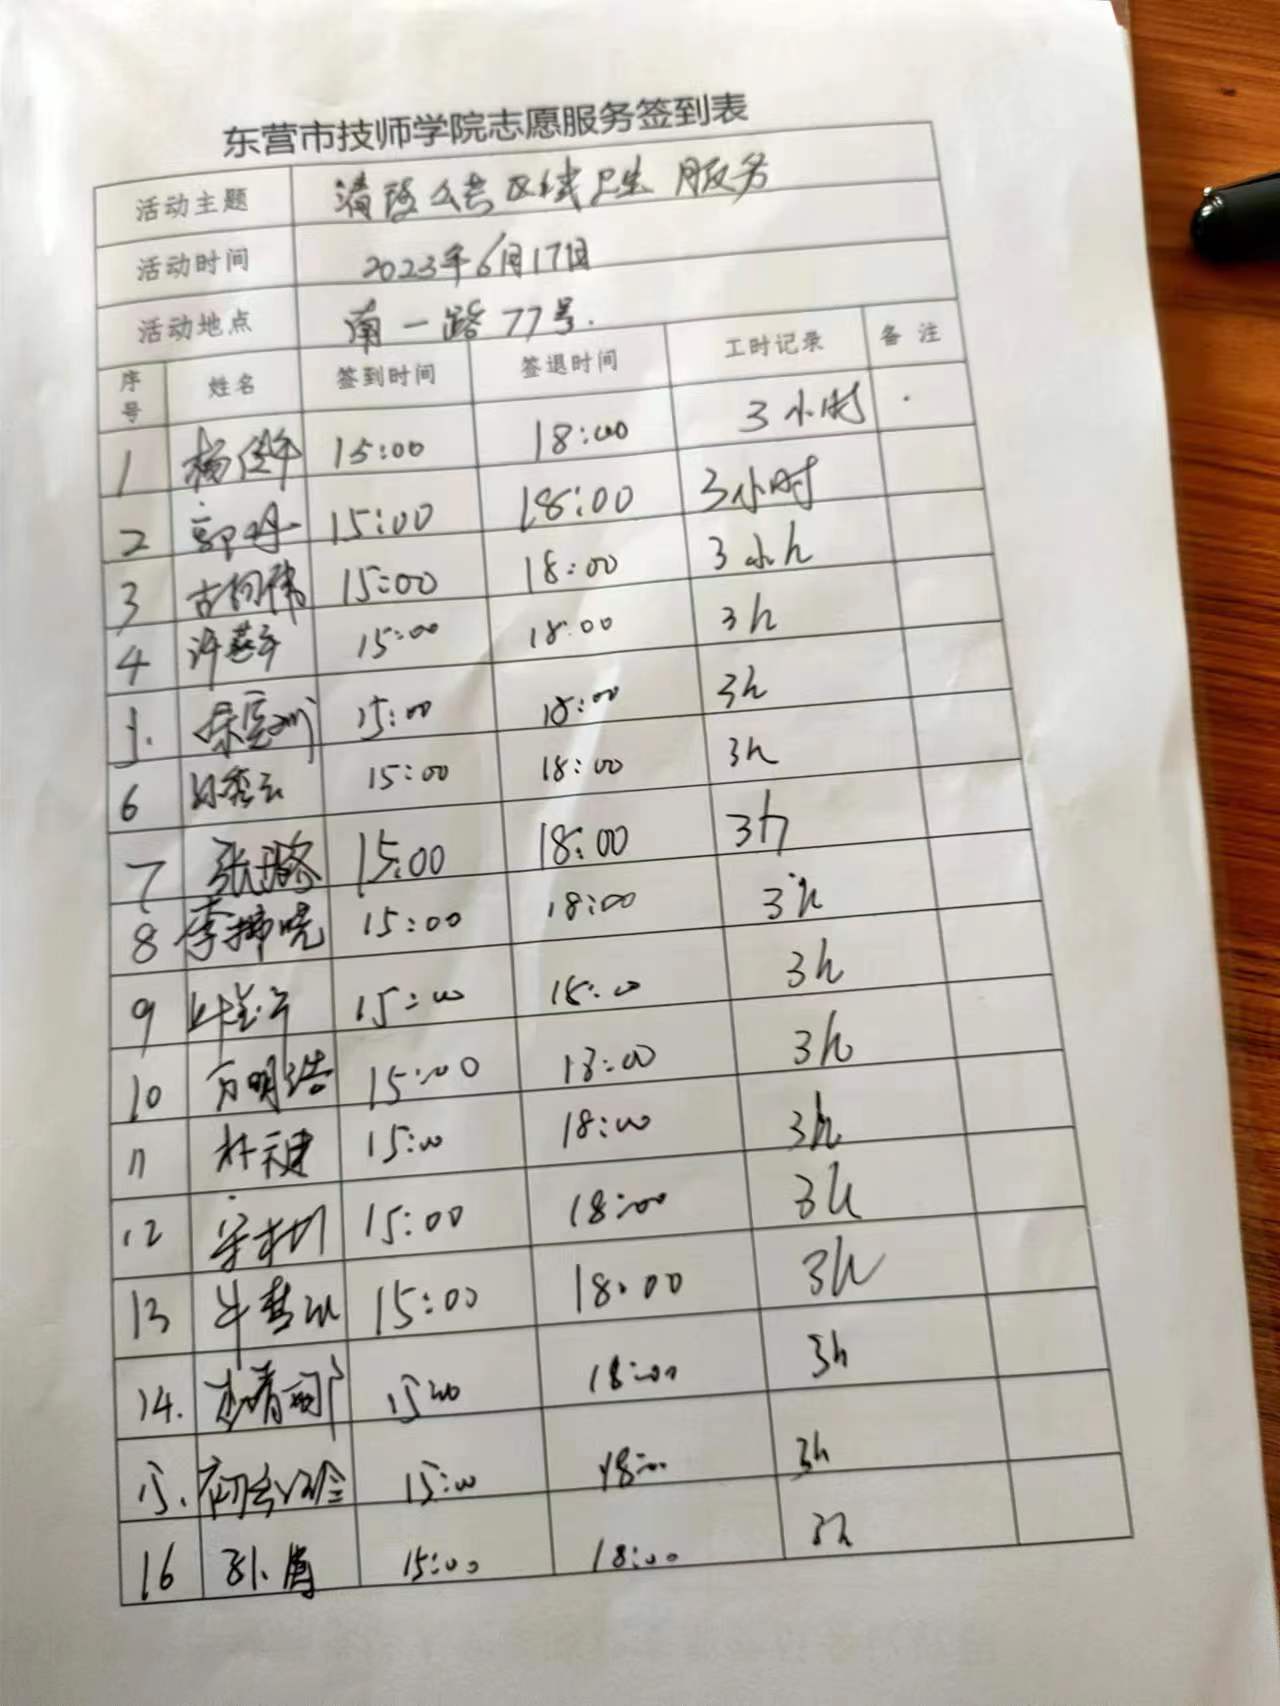 东营市技师学院志愿服务签到表
活动主题 清理公共区域卫生服务
活动时间 2023年6月17日
活动地点 南一路77号.
序号 姓名 签到时间 签退时间 工时记录 备注
1 杨 15:00 18:00 3小时
2 郭 15:00 18:00 3小时
3 古 伟 15:00 18:00 3小h
4 许 15:00 18:00 3h
5. 15:00 18:00 3h
6 秀云 15:00 18:00 3h
7 张璐 15:00 18:00 3h
8 李 晓 15:00 18:00 3h
9 15:00 18:00 3h
10 方明浩 15:00 18:00 3h
11 15:00 18:00 3h
12 宋 15:00 18:00 3h
13 牛梦 15:00 18:00 3h
14. 青 15:00 18:00 3h
15. 15:00 18:00 3h
16 孙 15:00 18:00 3h